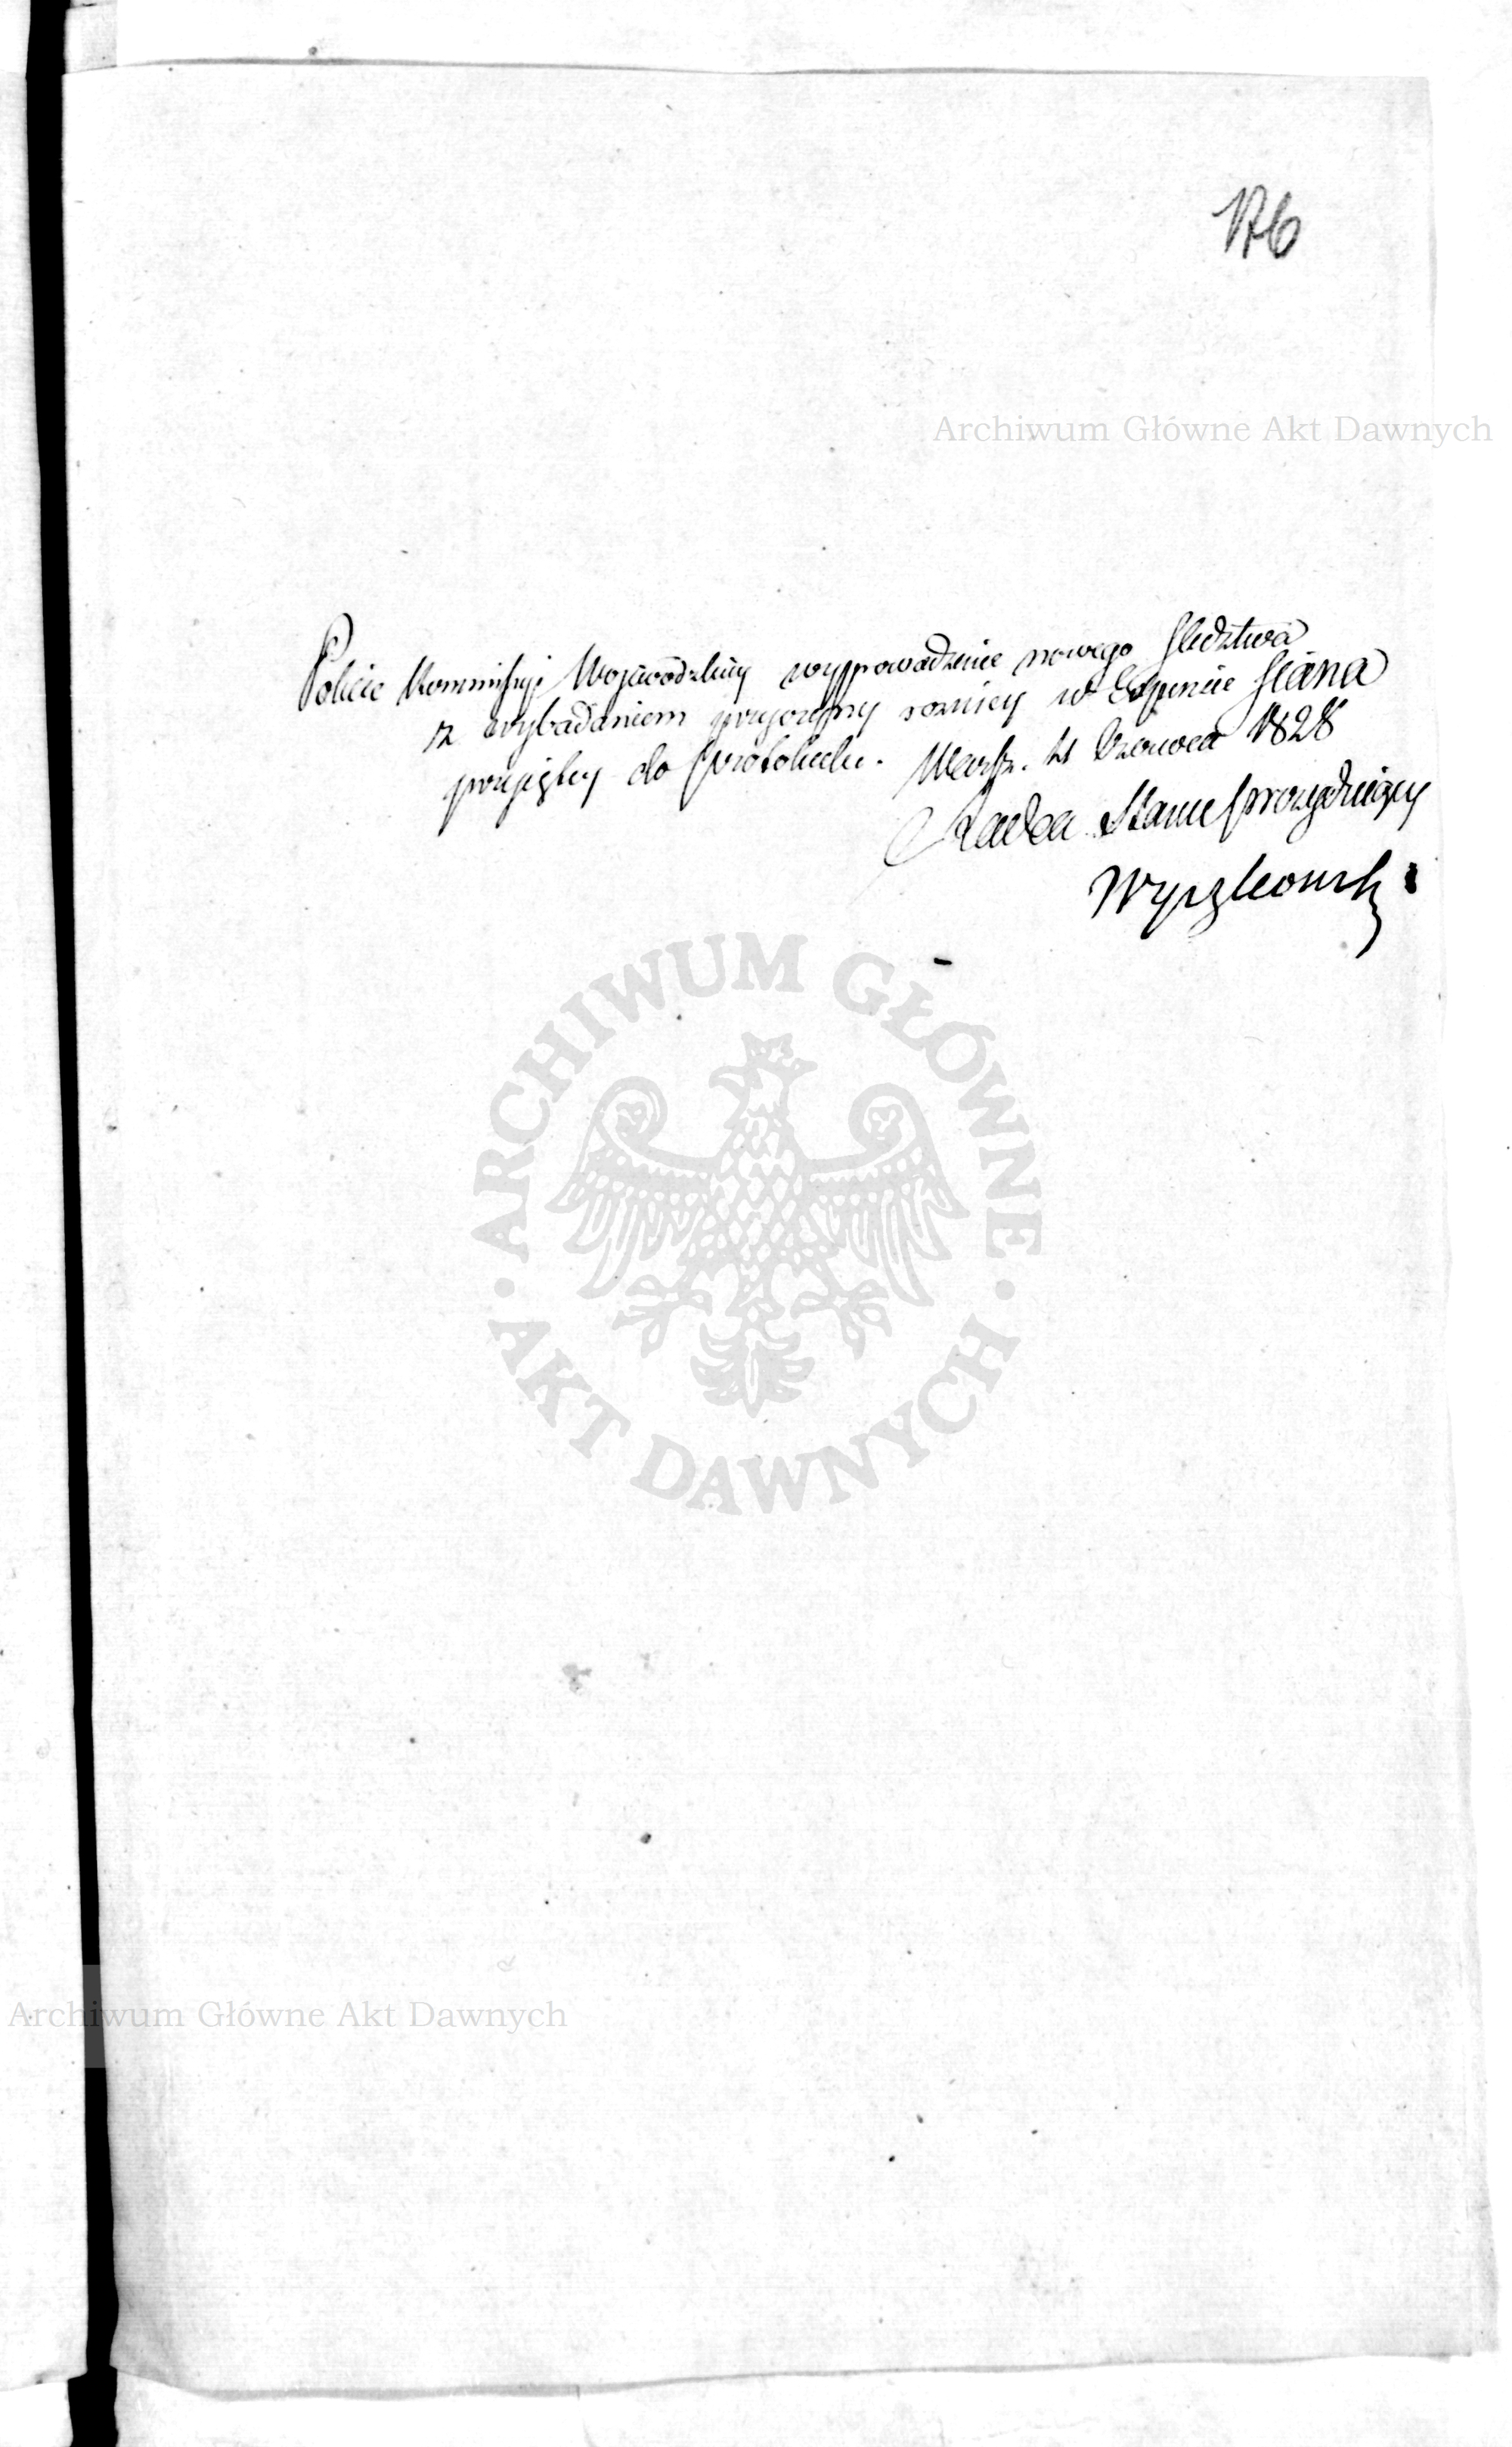 176
Archiwum Główne Akt Dawnych
Polecić Kommissyi Wojewódzkiey wyprowadzenie nowego śledztwa
z wybadaniem przyczyny różnicy w Exyencie siana
przyjętey do Protokułu. Warsz. 21 Czerwca 1828
Radca Stanu Prezyduiący
Wyczkowski
ARCHIWUM GŁÓWNE
AKT DAWNYCH
Archiwum Główne Akt Dawnych